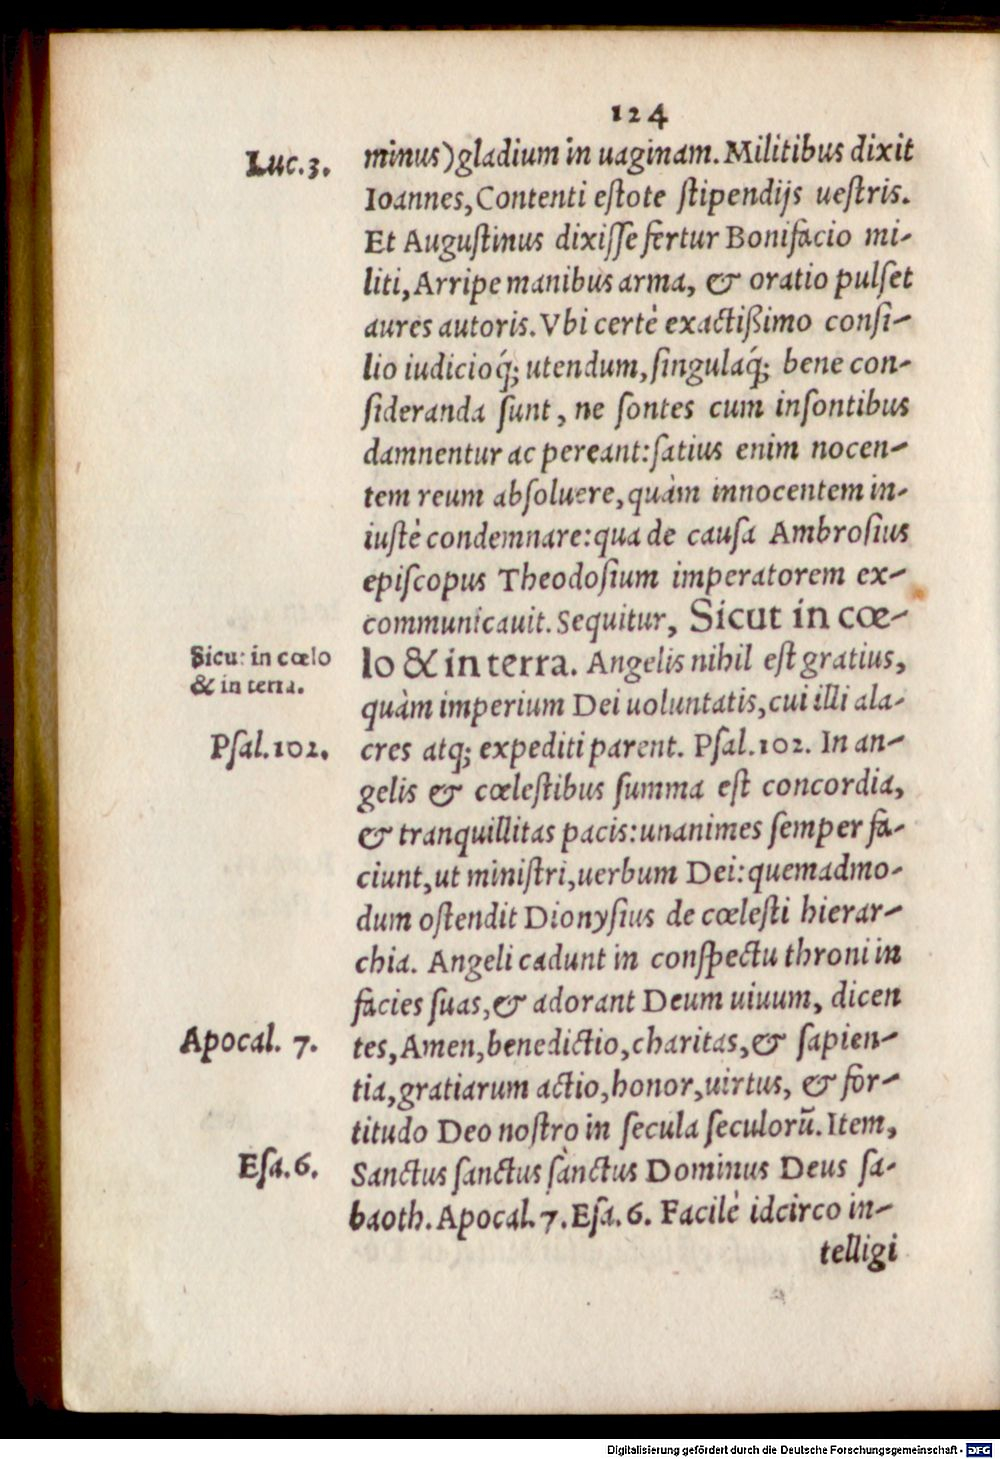 124
Luc.3.
minus)gladium in uaginam. Militibus dixit
Ioannes, Contenti eſtote ſtipendijs ueſtris.
Et Auguſtinus dixiſſe fertur Bonifacio mi-
liti, Arripe manibus arma, & oratio pulſet
aures autoris. Vbi certè exactißimo conſi-
lio iudicioq́; utendum, ſingulaq́; bene con-
ſideranda ſunt, ne ſontes cum inſontibus
damnentur ac pereant: ſatius enim nocen-
tem reum abſoluere, quàm innocentem in-
iuſtè condemnare: qua de cauſa Ambroſius
epiſcopus Theodoſium imperatorem ex-
communicauit. Sequitur, Sicut in cœ-
Sicut in cœlo
& in terra.
lo & in terra. Angelis nihil eſt gratius,
quàm imperium Dei uoluntatis, cui illi ala-
Pſal.102.
cres atq; expediti parent. Pſal.102. In an-
gelis & cœleſtibus ſumma eſt concordia,
& tranquillitas pacis: unanimes ſemper fa-
ciunt, ut miniſtri, uerbum Dei: quemadmo-
dum oſtendit Dionyſius de cœleſti hierar-
chia. Angeli cadunt in conſpectu throni in
facies ſuas, & adorant Deum uiuum, dicen
Apocal. 7.
tes, Amen, benedictio, charitas, & ſapien-
tia, gratiarum actio, honor, uirtus, & for-
titudo Deo noſtro in ſecula ſeculorũ. Item,
Eſa.6.
Sanctus ſanctus ſànctus Dominus Deus ſa-
baoth. Apocal. 7. Eſa. 6. Facilè idcirco in-
telligi
Digitalisierung gefördert durch die Deutsche Forschungsgemeinschaft - DFG